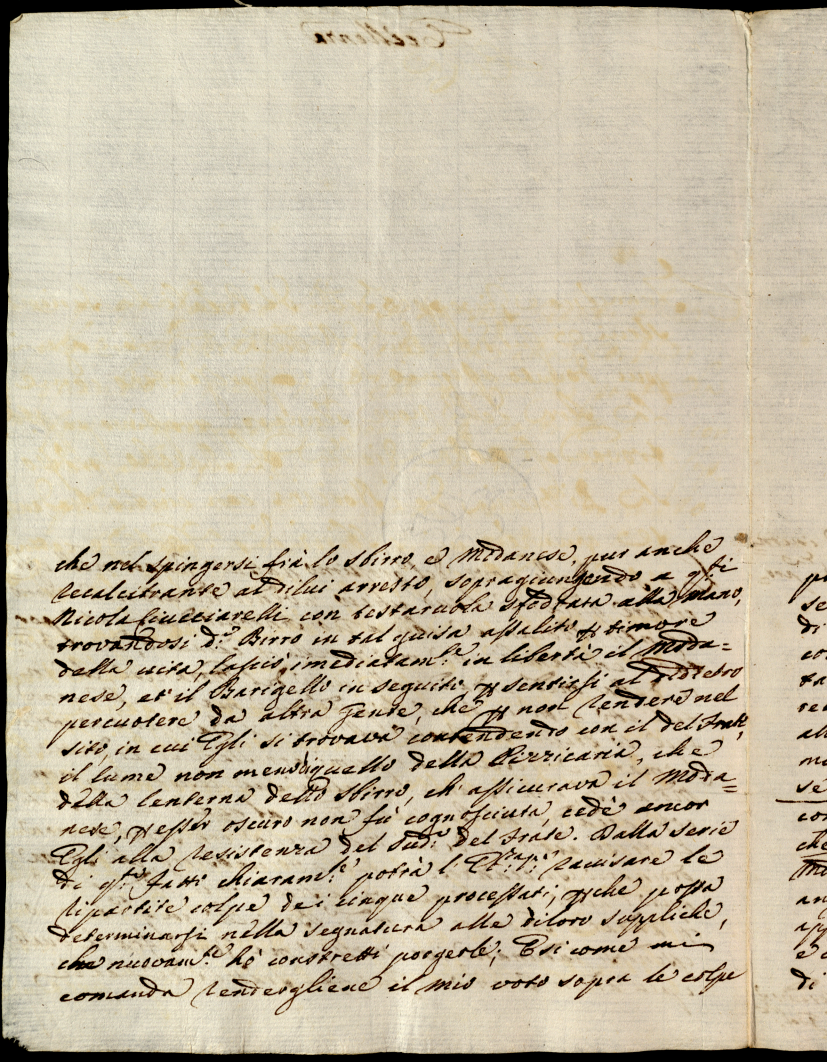 che nel spingersi frà lo sbirro e Modanese, pur anche
recalcitrante al dilui arresto, sopragiungendo a q.ti
Nicola Ciucciarelli con testaruola sfodrata alla mano,
trovandosi d.o Birro in tal guisa assalito p timore
della vita, lasciò imediatam.e in libertà il Moda=
nese, et il Barigello in seguito, p sentirsi al didietro
percuotere da altra gente, che p non rendere nel
sito, in cui Egli si trovava contendendo con il del Frate,
il lume non meno quello della Pizzicaria, che
della lenterna dello sbirro, ch' assicurava il Moda=
nese, p esser oscuro non fù cognosciuta, cedè ancor
Egli alla resistenza del sud.o del Frate. Dalla serie
di q.ti fatti chiaram.e potrà l' raccisare le
ripartite colpe de i cinque processati, p che possa
determinarsi nella segnatura alle diloro suppliche,
che nuovam.e hò constretti porgerle; E si come mi
comanda rendergliene il mio voto sopra le colpe